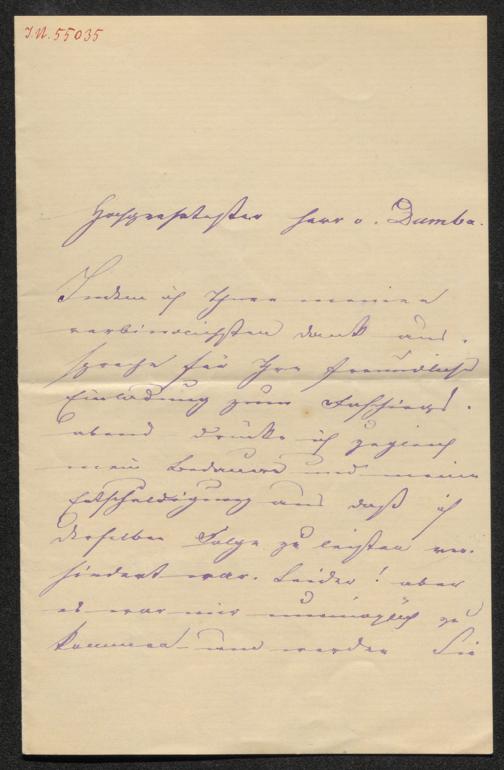 I.N. 55035
Hochgeehrtester Herr v. Dumba.
Indem ich Ihnen meinen
verbindlichsten Dank aus-
spreche für Ihre freundliche
Einladung zum Faschings-
abend drücke ich zugleich
mein Bedauern und meine
Entschuldigung aus daß ich
derselben Folge zu leisten ver-
hindert war. Leider! aber
es war mir unmöglich zu
kommen und werden Sie